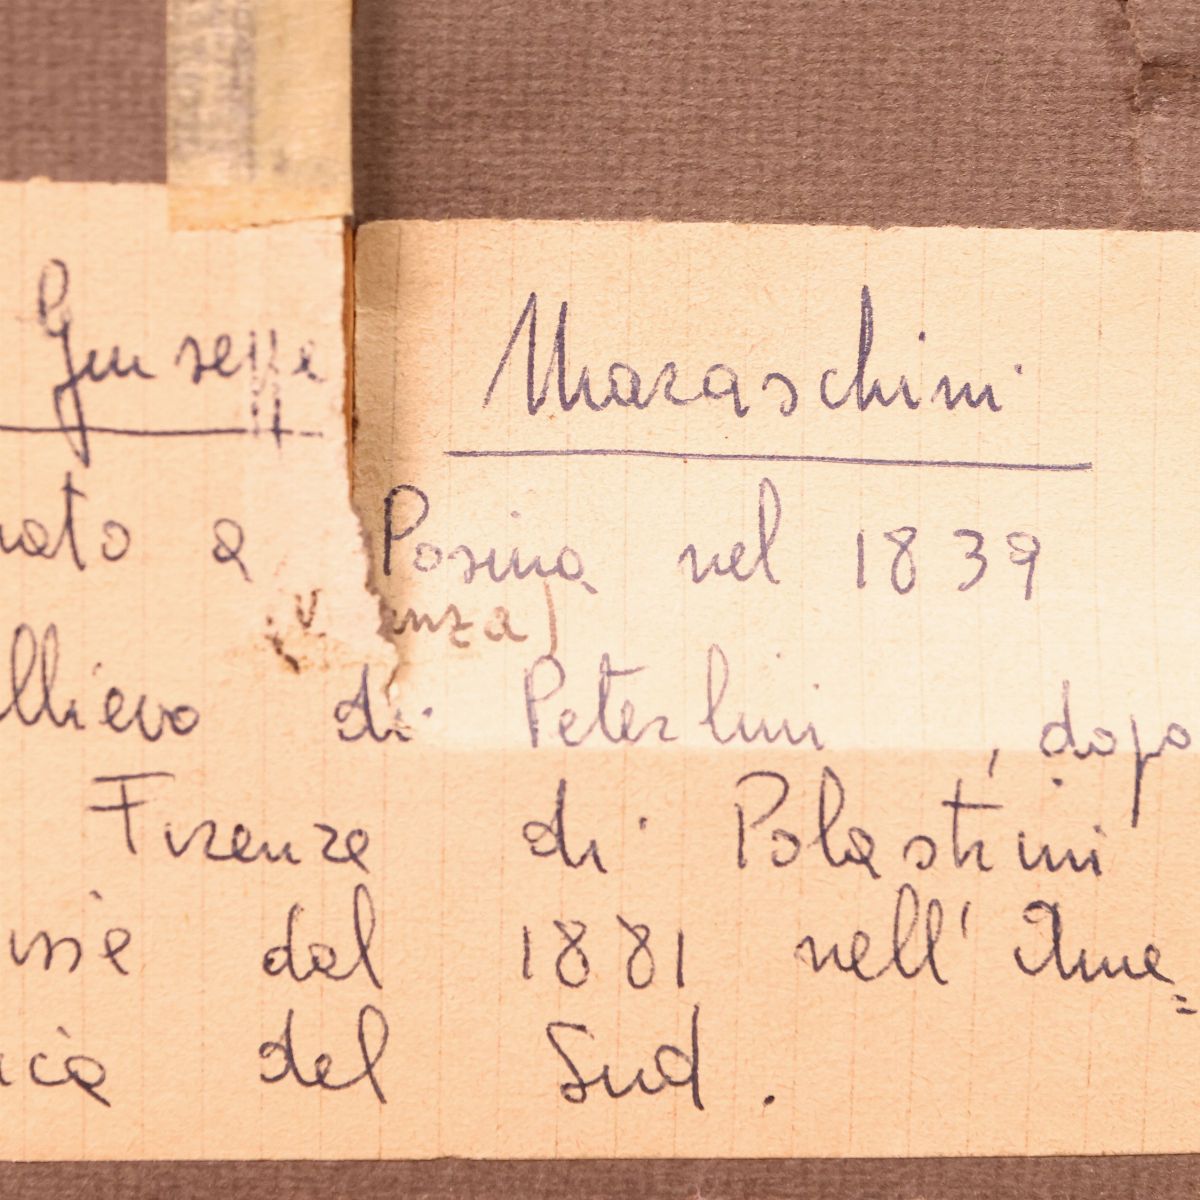 Giuseppe Maraschini
nato a Posina nel 1839
(Vicenza)
allievo di Peterlini, dopo
Firenze di Polastrini
visse dal 1881 nell'Ame=
rica del Sud.